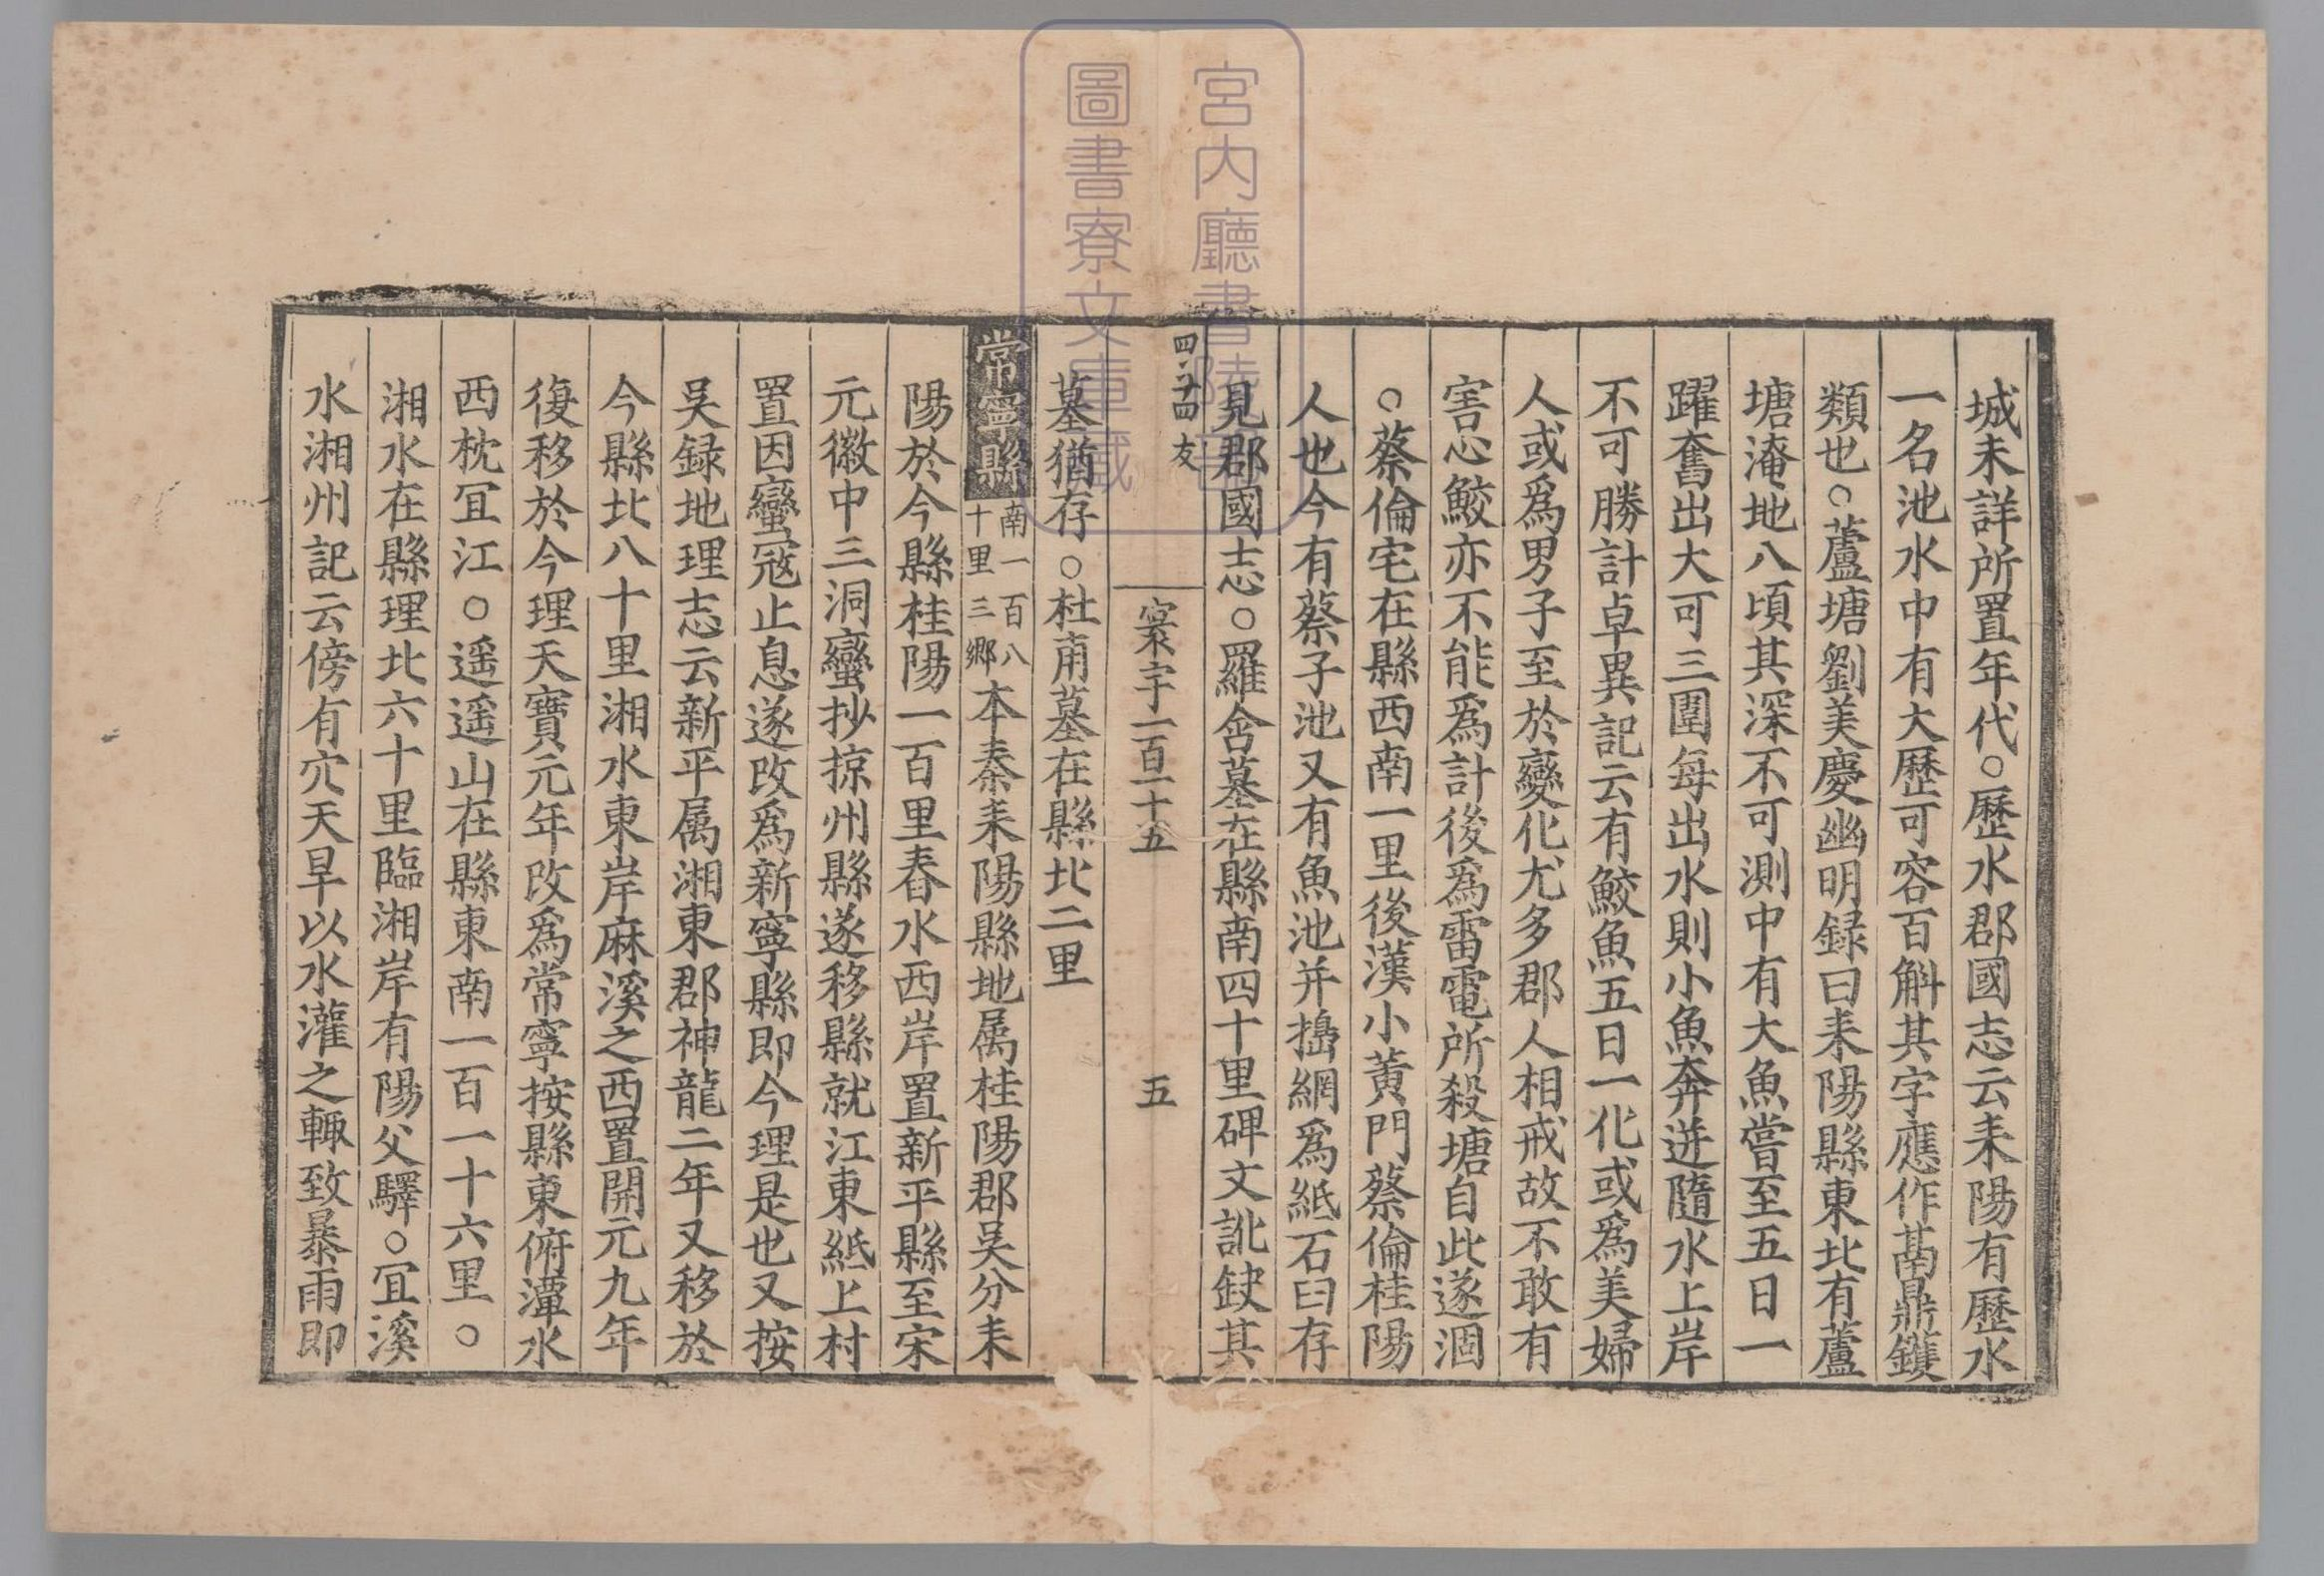 城未詳所置年代○歷水郡國志云耒陽有歷水
一名池水中有大歷可容百斛其字應作鬲鼎鑊
類也○蘆塘劉義慶幽明録曰耒陽縣東北有蘆
塘淹地八頃其深不可測中有大魚嘗至五日一
躍奮出大可三圍每出水則小魚奔迸隨水上岸
不可勝計卓異記云有鮫魚五日一化或爲美婦
人或爲男子至於變化尤多郡人相戒故不敢有
害心鮫亦不能爲計後爲雷電所殺塘自此遂涸
○蔡倫宅在縣西南一里後漢小黄門蔡倫桂陽
人也今有蔡子池又有魚池并擣網爲紙石臼存
見郡國志○羅含墓在縣南四十里碑文訛缺其
四·廿四 友
寰宇一百一十五
五
墓猶存○杜甫墓在縣北二里
常寧縣 南一百八十里三鄉 本秦耒陽縣地属桂陽郡吴分耒
陽於今縣桂陽一百里舂水西岸置新平縣至宋
元徽中三洞蠻抄掠州縣遂移縣就江東紙上村
置因蠻冦止息遂改爲新寧縣即今理是也又按
吴録地理志云新平属湘東郡神龍二年又移於
今縣北八十里湘水東岸麻溪之西置開元九年
復移於今理天寶元年改爲常寧按縣東俯潭水
西枕冝江○遥遥山在縣東南一百一十六里○
湘水在縣理北六十里臨湘岸有陽父驛○冝溪
水湘州記云傍有穴天旱以水灌之輙致暴雨即
宮内廳書陵部
圖書寮文庫藏